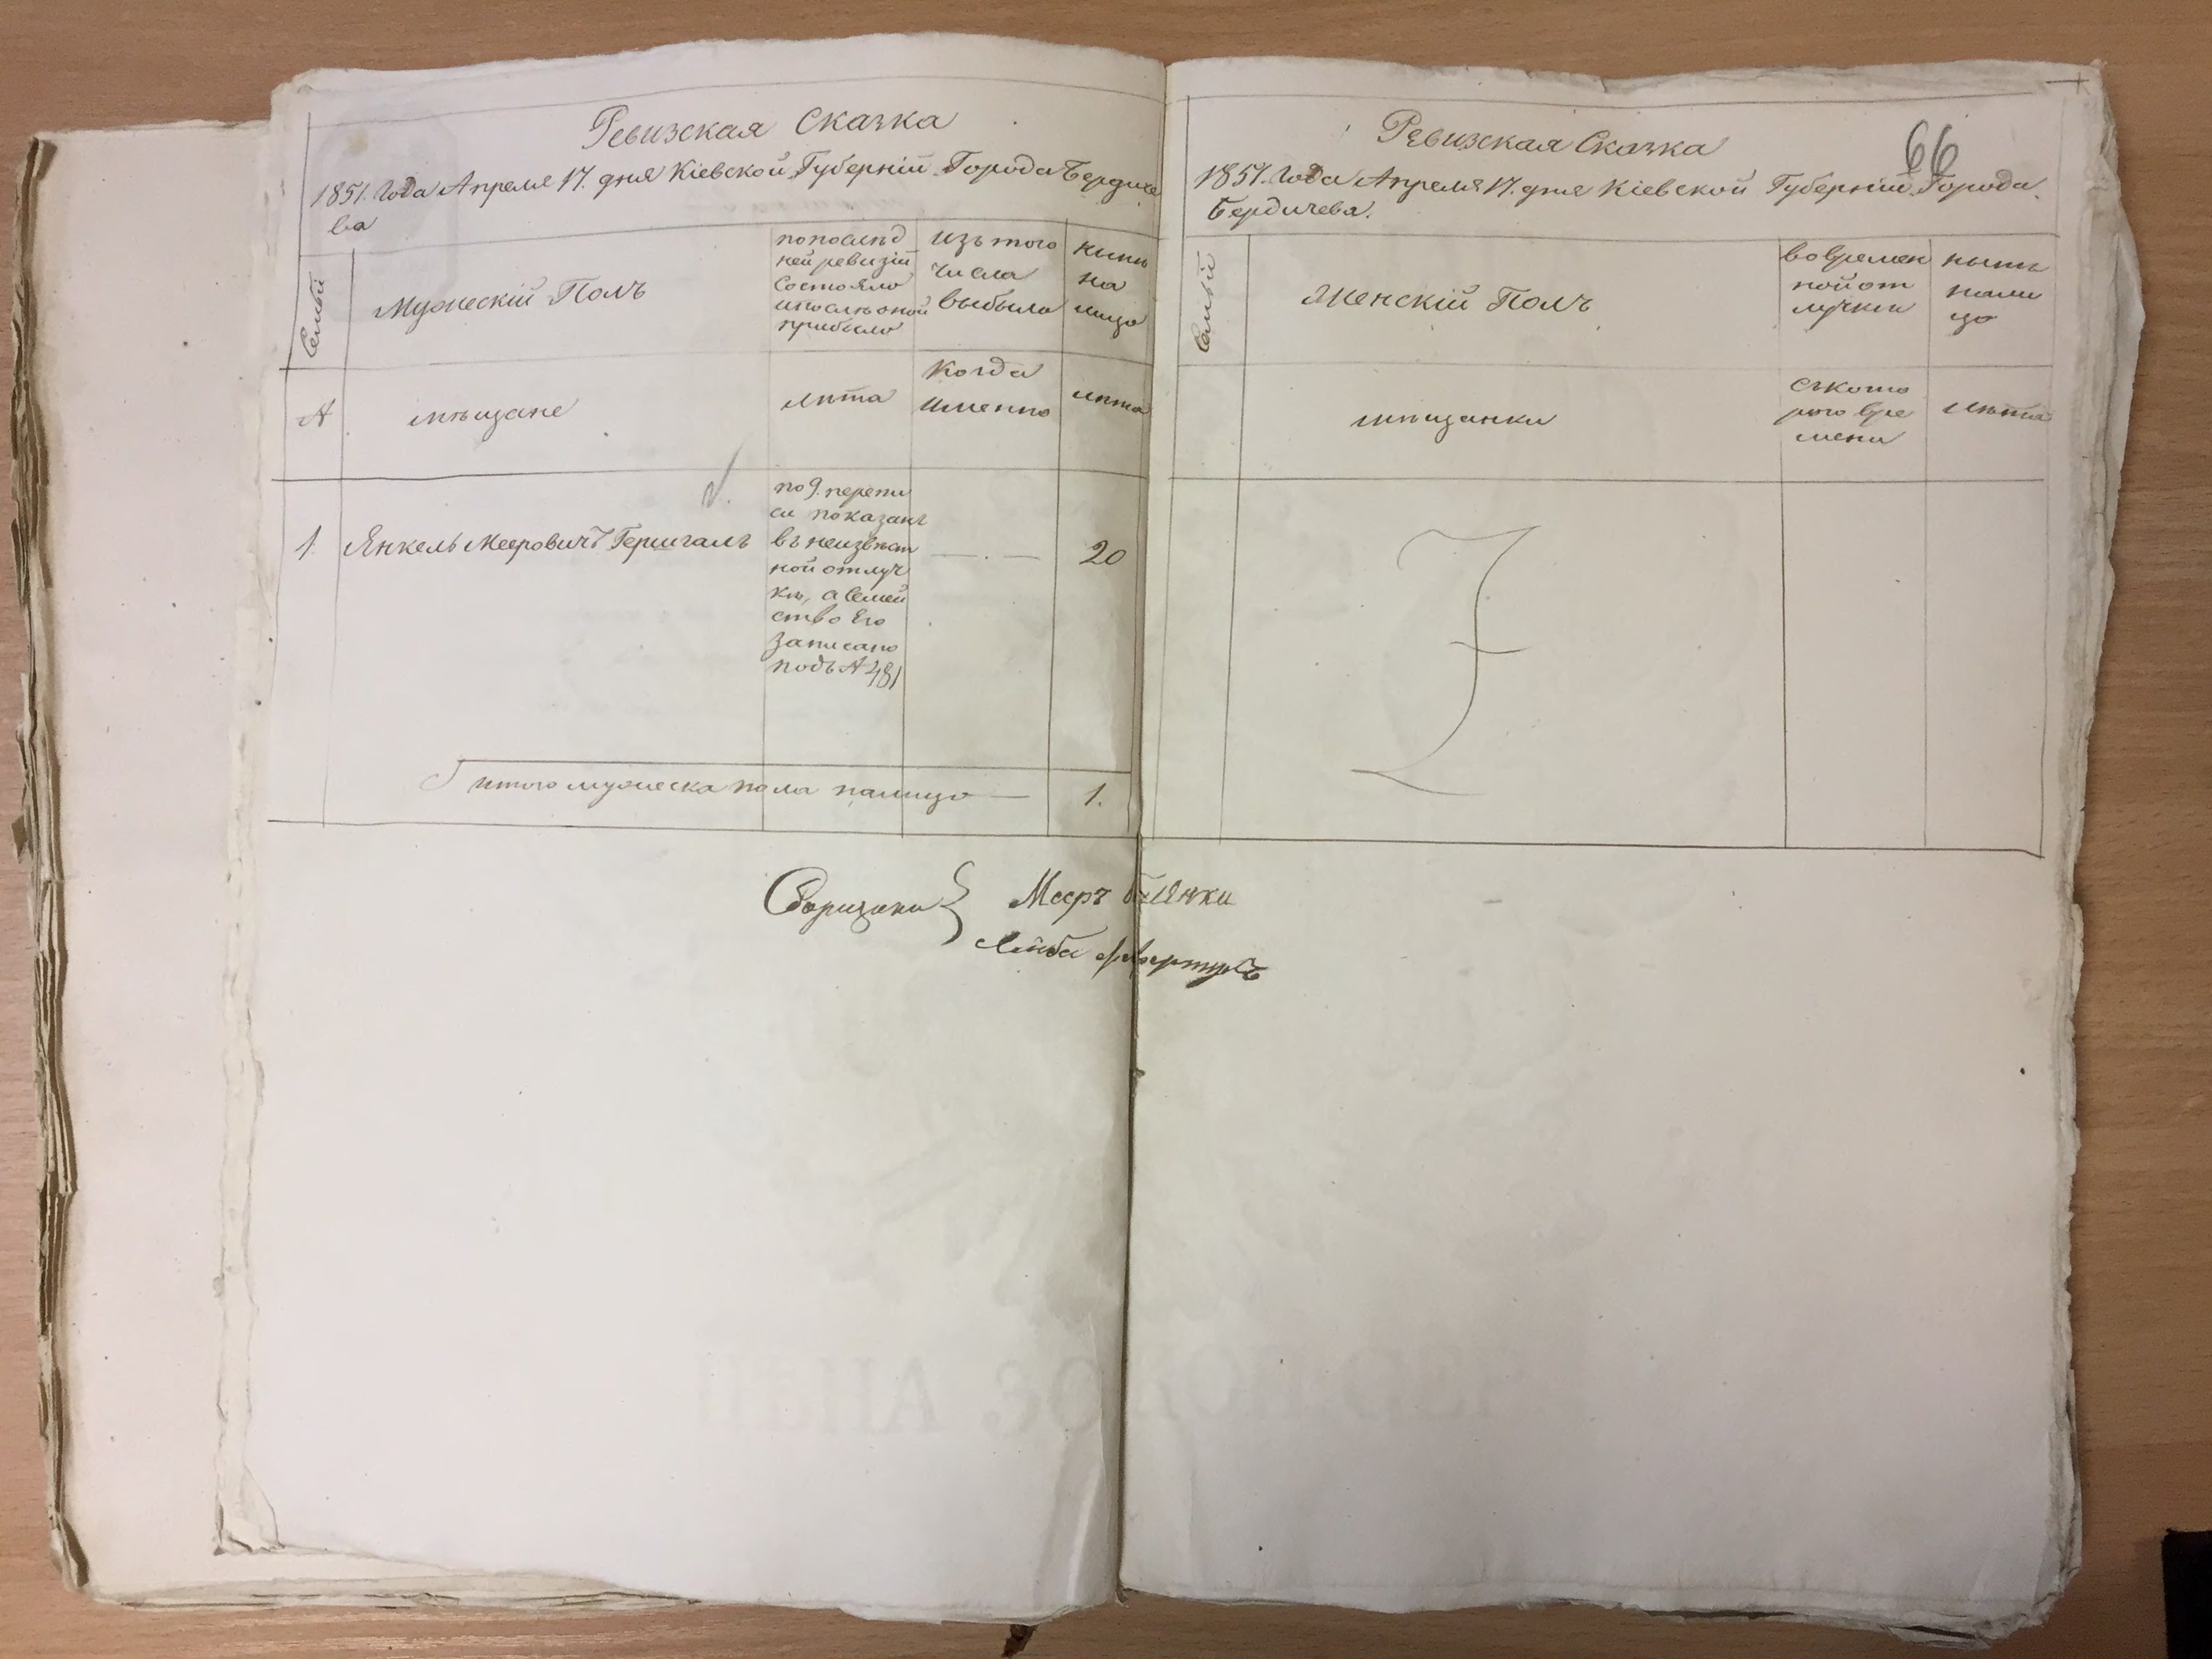 Ревизская Сказка
1851. Года Апреля 17. дня Кіевской Губерніи Города Бердиче
ва
Семьи
Мужескій Полъ
по послѣд
ней ревизіи
Состояло
и послѣ оной
прибыло
изъ того
числа
выбыло
нынѣ
на
лицо
№
мѣщане
лѣта
когда
именно
лѣта
1
Янкель Меерович Гершгалъ
по 9. перепи
си показанъ
въ неизвѣст
ной отлуч
кѣ, а Семей
ство Его
записано
подъ № 481
— . —
20
итого мужеска пола налицо —
1.
66
Ревизская Сказка
1851. Года Апреля 17. дня Кіевской Губерніи Города
Бердичева.
Семьи
Женскій Полъ
во времен
ной от
лучки
нынѣ
нали
цо
мѣщанки
съ кото
рого вре
мени
лѣта
Мееръ